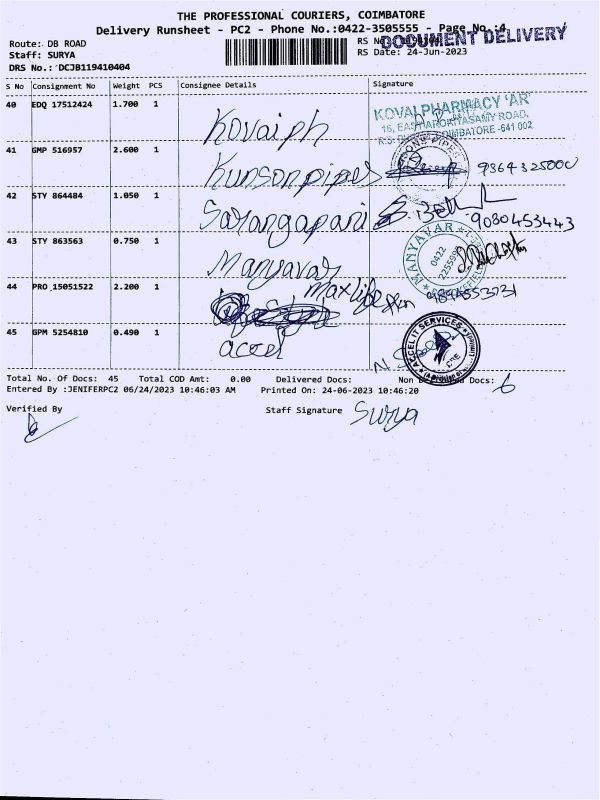 THE PROFESSIONAL COURIERS, COIMBATORE
Delivery Runsheet - PC2 - Phone No.:0422-3505555 - Page No.:4
Route: DB ROAD
RS No.:
DOCUMENT DELIVERY
Staff: SURYA
RS Date: 24-Jun-2023
DRS No.: DCJB119410404
S No Consignment No Weight PCS Consignee Details Signature
40 EDQ 17512424 1.700 1
Kovaiph
KOVAI PHARMACY 'AR'
ROAD,
COIMBATORE -641 002
41 GMP 516957 2.600 1
Kunsonpipes
9364325000
42 STY 864484 1.050 1
Sarangapani
9080453443
43 STY 863563 0.750 1
Manyavar
MANYAVAR
0422
44 PRO 15051522 2.200 1
maxlife
45 GPM 5254810 0.490 1
accel
ACCEL IT SERVICES
Total No. Of Docs: 45 Total COD Amt: 0.00 Delivered Docs: Non Docs: 6
Entered By :JENIFERPC2 06/24/2023 10:46:03 AM Printed On: 24-06-2023 10:46:20
Verified By
Staff Signature Surya